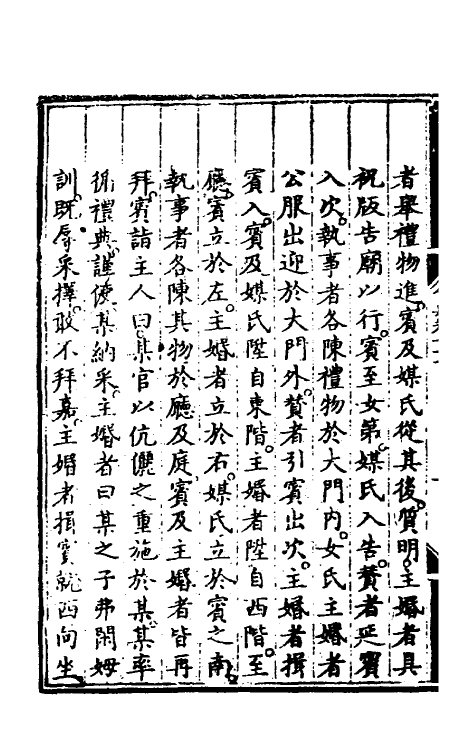 者舉禮物進賓及媒氏從其後質明主婚者具
祝版告廟以行賓至女第媒氏入告贊者延賓
入次執事者各陳禮物於大門內女氏主婚者
公服出迎於大門外贊者引賓出次主婚者揖
賓入賓及媒氏陞自東階主婚者陞自西階至
廳賓立於左主婚者立於右媒氏立於賓之南
執事者各陳其物於廳及庭賓及主婚者皆再
拜賓詣主人曰某官以伉儷之重施於某某率
循禮典謹使某納采主婚者曰某之子弗閑姆
訓旣辱采擇敢不拜嘉主婚者揖賓就西向坐